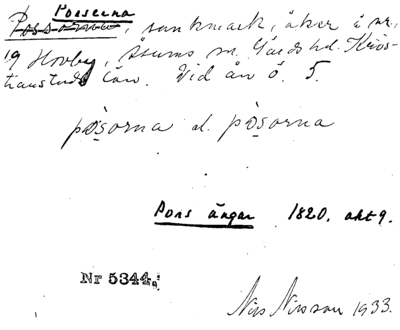 Posserna
Possorna, sankmark, åker å nr
19 Hovby, Åhus sn. Gärds hd. Kris-
tianstads län. Vid ån ö. 5.
pòsorna el. pòsorna
Pors ängar 1820. akt 9.
Nr 5344
Nils Nilsson 1933.